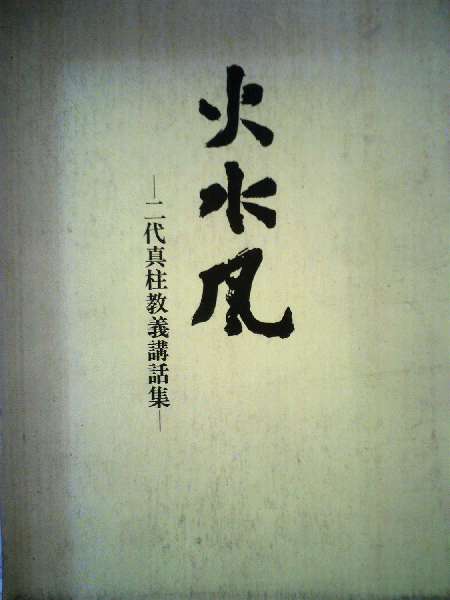 火水風
―二代真柱教義講話集―